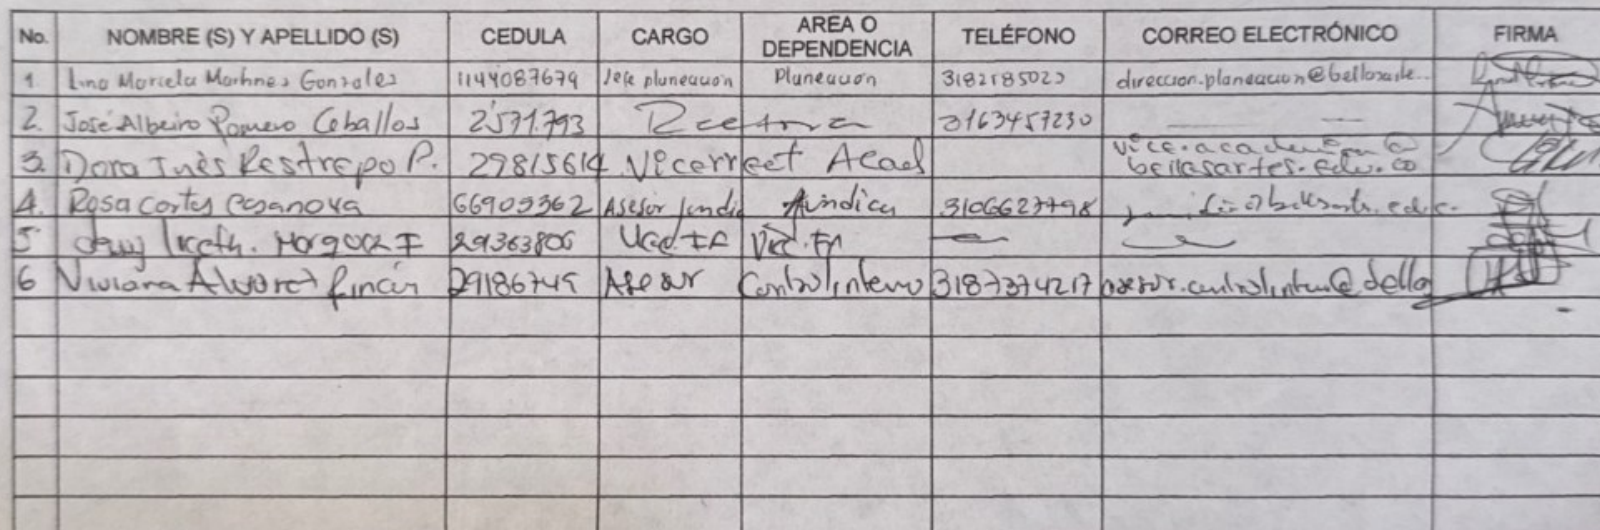 No. NOMBRE (S) Y APELLIDO (S) CEDULA CARGO AREA O DEPENDENCIA TELÉFONO CORREO ELECTRÓNICO FIRMA
1. Lina Marcela Martinez Gonzales 1144087679 Jefe planeacion Planeacion 3182185023 direccion.planeacion@bellasarte..
2. José Albeiro Romero Ceballos 2'571.793 Rectora 3163457230
3. Dora Inés Restrepo P. 29815614 Vicerrect Acad vice.academica@
bellasartes.edu.co
4. Rosa Cortes Casanova 66909362 Asesor Juridic Juridica 3106627798
5 29363806 Vic.
6 Viviana Alvarez Rincón 29186745 Asesor Control interno 3187374217 asesor.controlinterno@bella